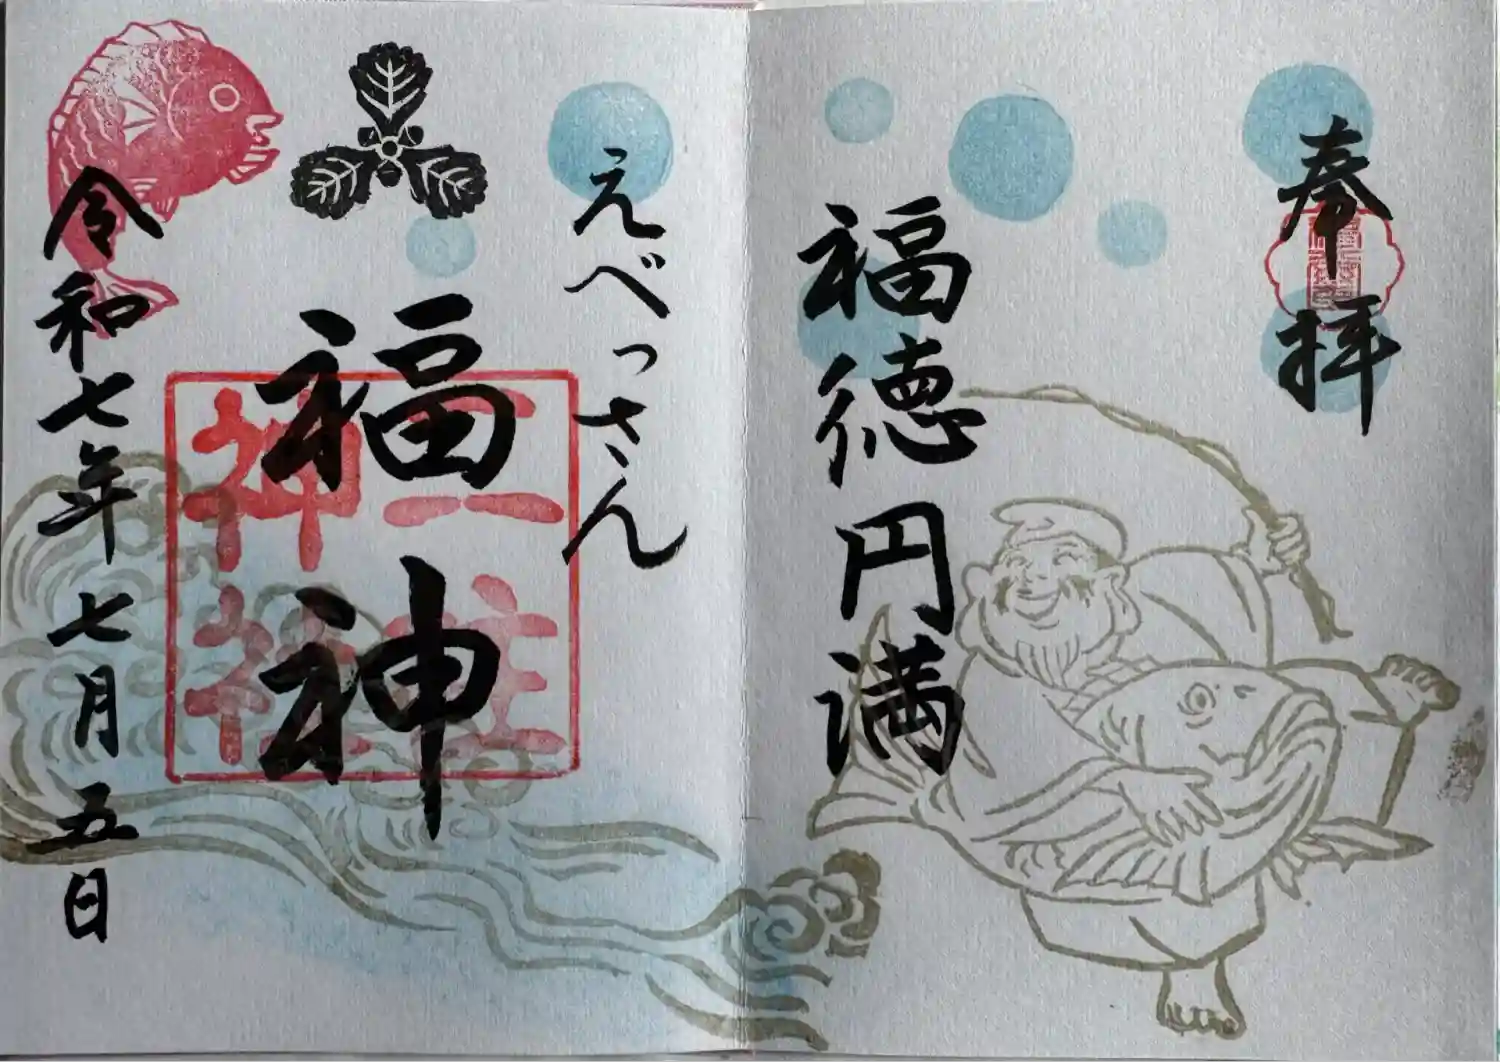 奉拝
福徳円満
えべっさん
福神
二柱神社
令和七年七月五日